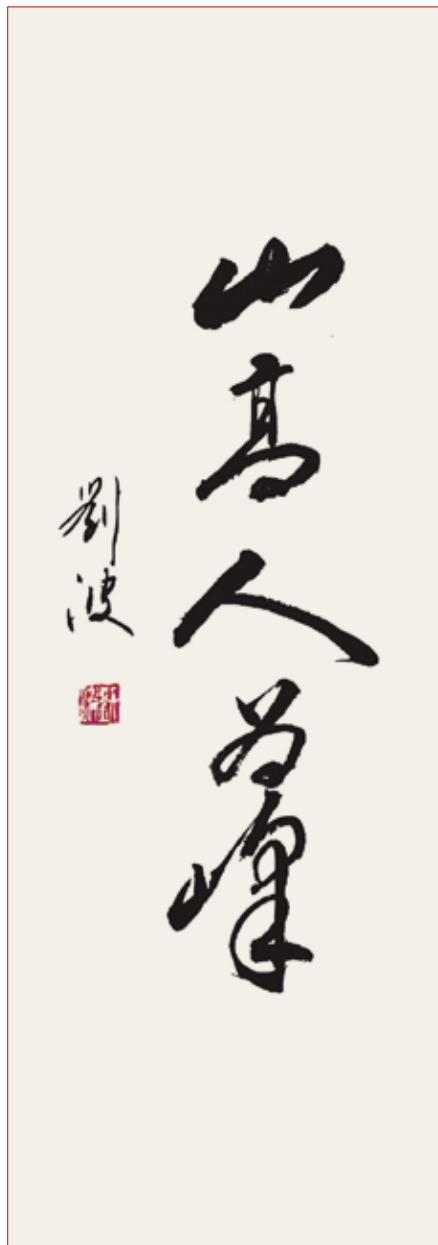 山高人为峰
劉波